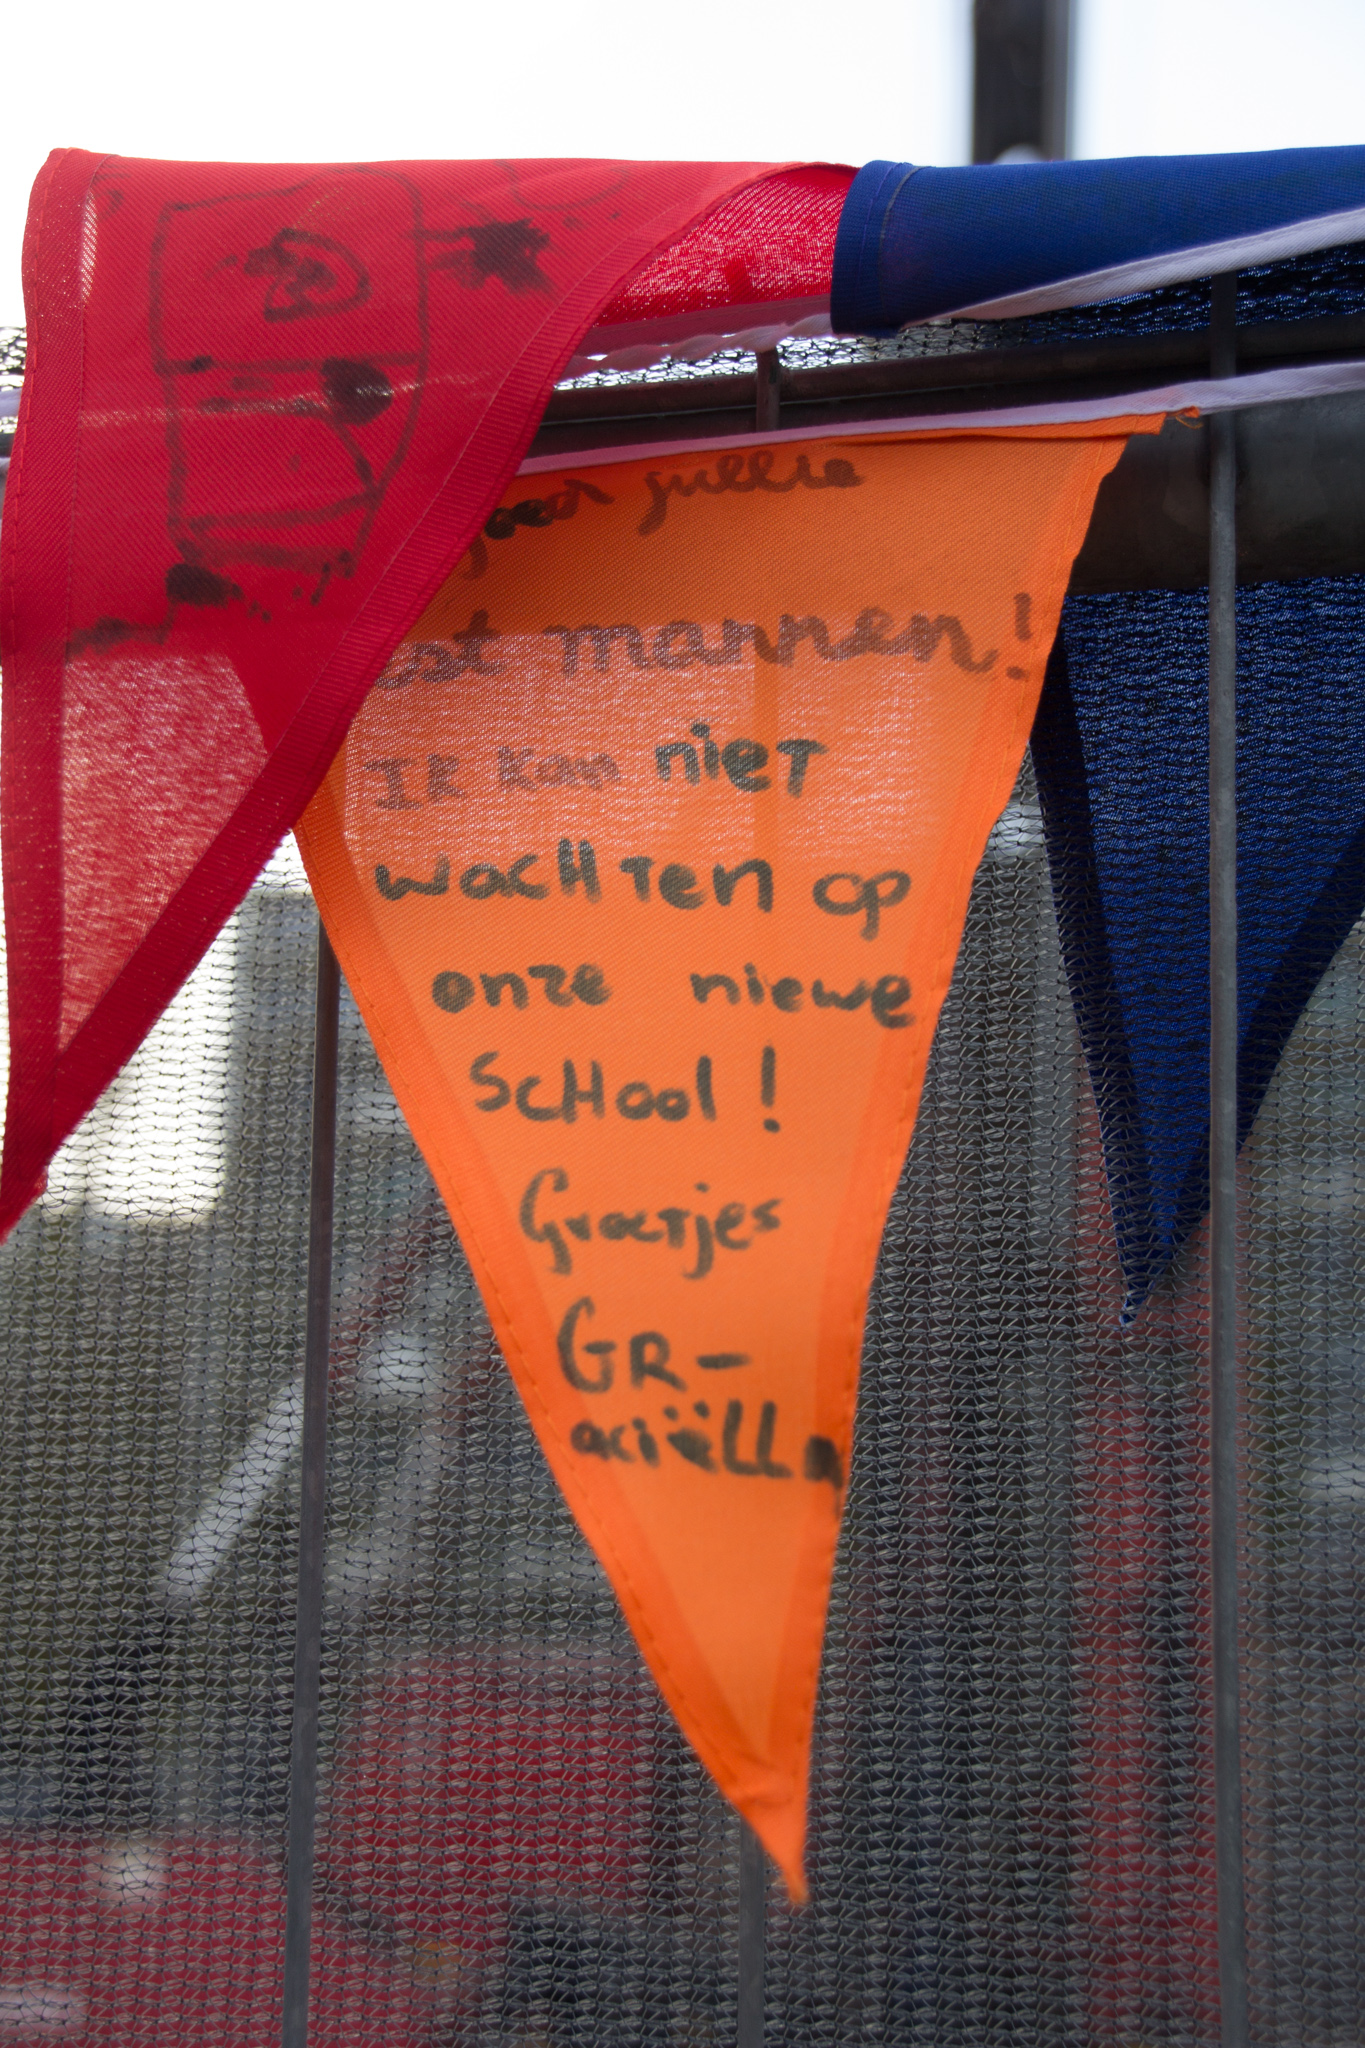 jullie
mannen!
Ik kan nieT
wacHTen op
onze niewe
ScHool!
Groetjes
GR-
aciëlla